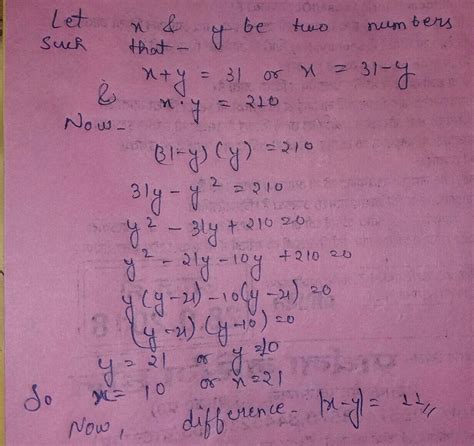 Let x & y be two numbers
such that -
x+y = 31 or x = 31-y
& x·y = 210
Now-
(31-y)(y) = 210
31y - y² = 210
y² - 31y + 210 = 0
y² - 21y - 10y + 210 = 0
y(y-21) - 10(y-21) = 0
(y-21)(y-10) = 0
y = 21 or y = 10
So x = 10 or x = 21
Now, difference - |x-y| = 11,,